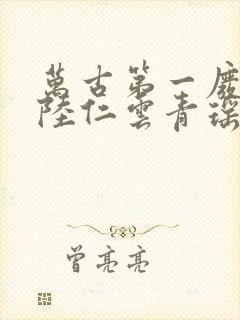 萬古第一廢
陸仁雲青瑤
曾亮亮